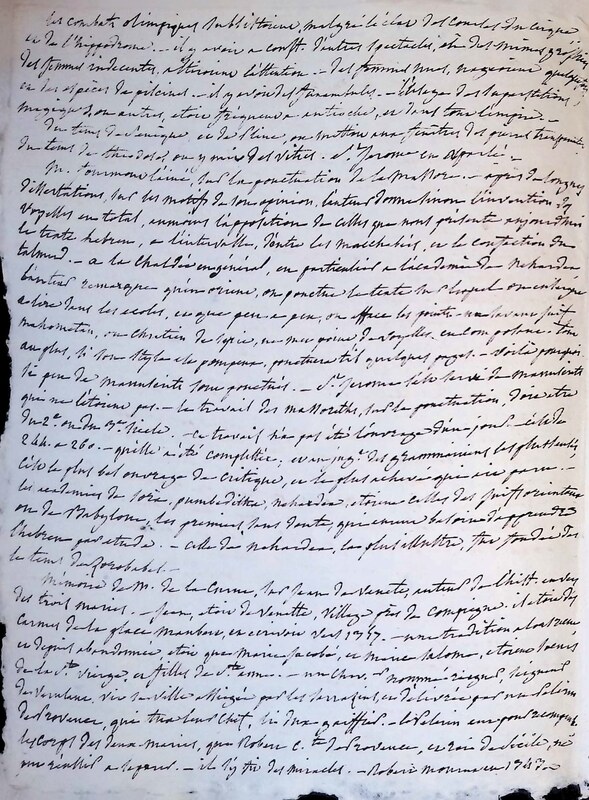 les combats olimpiques subsistoient, malgré l'éclat des courses du cirque,
et de l'hippodrome. — il y avoit a const. d'autres spectacles, et des mimes
des femmes indecentes, attiroient l'attention. — des femmes nues, nageoient quelquefois
en des especes de piscines. — il y avoit des funambules. — l'usage des superstitions
magiques, ou autres, etoit frequent a antioche, et dans tout l'empire. —
Du tems de Seneque, et de Pline, on mettoit aux fenêtres des pierres transparentes
du tems de theodose, on y mit des vitres. St. Jerome en a parlé. —
M. fourmont l'ainé, sur la ponctuation de la Massore. — après de longues
dissertations, sur les motifs de son opinion, l'auteur donne sinon l'invention des
voyelles en total, au moins l'apposition de celles que nous presente aujourdhui
le texte hebreu, a l'intervalle, d'entre les macchabées, et la confection du
talmud. — a la Chaldée en général, en particulier a l'academie de Nahardea
l'auteur remarque qu'en orient, on ponctue le texte sur lequel on enseigne
a lire dans les ecoles, et que peu a peu, on efface les points. un savant juif
mahometan, ou chretien de syrie, ne met point de voyelles, en son poleme. tout
au plus, si son style est pompeux, ponctuera t'il quelques mots. — voilà pourquoi
si peu de manuscrits sont ponctués. — St. jerome s'est servi de manuscrits
que ne l'etoient pas. — le travail des massoreths, sur la ponctuation, doit etre
du 2e. ou du 3e. siecle — ce travail n'a pas été l'ouvrage d'un jour. — c'est de
244. a 260. — qu'elle a été completée; et au jugt. des grammairiens les plus habiles
c'est le plus bel ouvrage de critique, et le plus achevé qui ait paru. —
les academies de sora, pumbeditha, nahardea, etoient celles des juifs orientaux
ou de Babylone, les premiers, sans doute, qui eurent besoin d'apprendre
l'hebreu par etude. — celle de nahardea, la plus illustre, fut fondée des
le tems de Zorobabel. —
Memoire de M. de la Curne, sur Jean de Venette, auteur de l'hist. en vers
des trois maries. — Jean, etoit de venette, village près de Compiegne. il etoit des
Carmes de la place Maubert, et ecrivoit vers 1357. — une tradition alors reçue
et depuis abandonnée, etoit que marie jacobé, et marie salomé, etoient soeurs
de la Ste. vierge, et filles de Ste. anne. — un Chev. nommé seigneur
de vit sa ville assiegée par les sarrazins, et delivrée par un Pelerin
de Provence, qui tua leur chef, — le Pelerin eut pour recompense
les corps des deux maries, que Robert c.te de Provence, et roi de sicile,
— il s'y fit des miracles. — Robert mourut en 1343